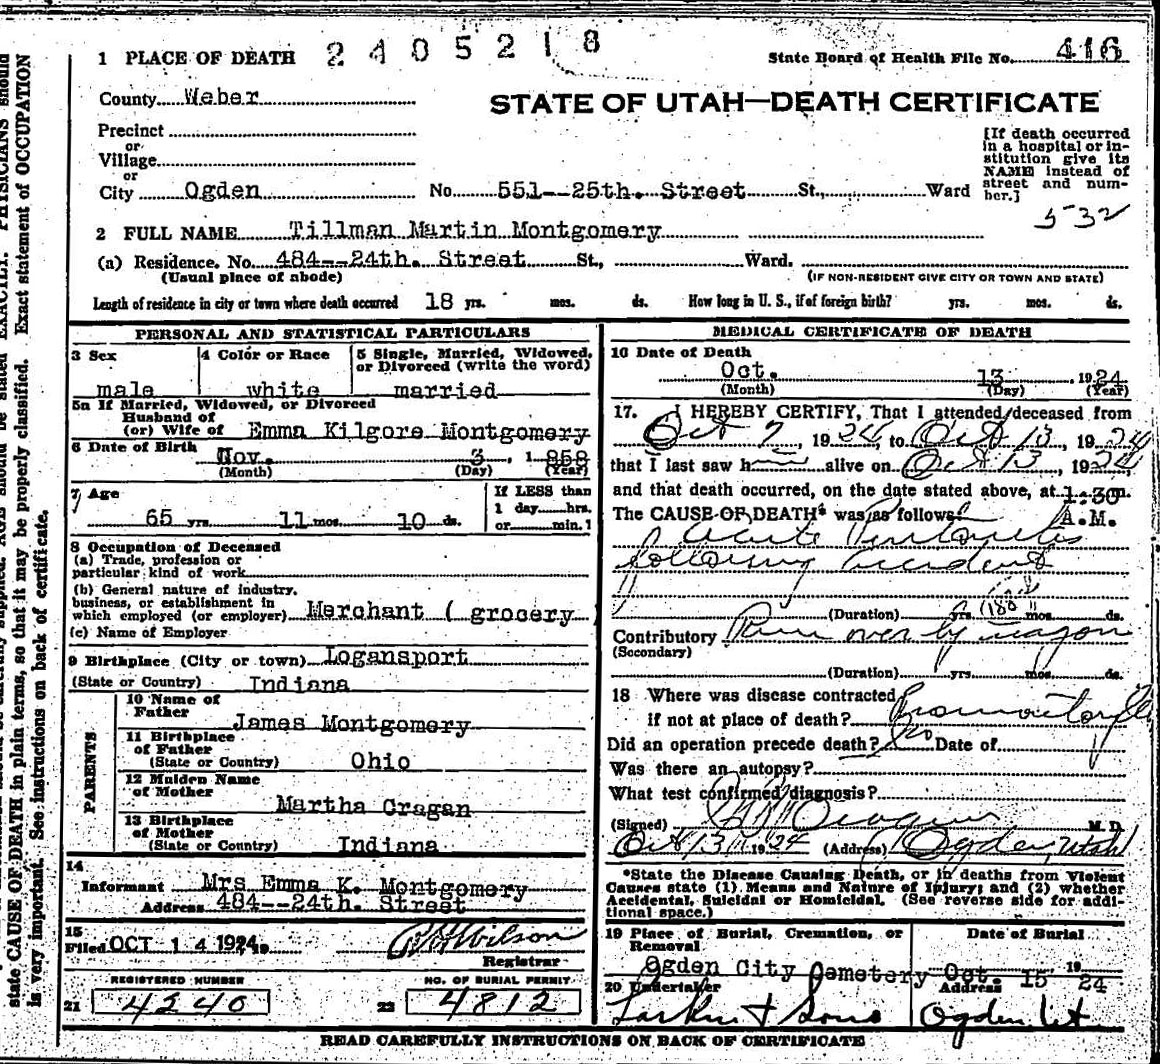 2405218
1 PLACE OF DEATH
State Board of Health File No. 416
County Weber
STATE OF UTAH—DEATH CERTIFICATE
Precinct
or
Village
or
City Ogden No. 551--25th. Street St., Ward
[If death occurred in a hospital or in-
stitution give its
NAME instead of
street and num-
ber.]
532
2 FULL NAME Tillman Martin Montgomery
(a) Residence. No. 484--24th. Street St., Ward.
(Usual place of abode) (IF NON-RESIDENT GIVE CITY OR TOWN AND STATE)
Length of residence in city or town where death occurred 18 yrs. mos. ds. How long in U. S., if of foreign birth? yrs. mos. ds.
PERSONAL AND STATISTICAL PARTICULARS
3 Sex 4 Color or Race 5 Single, Married, Widowed,
or Divorced (write the word)
male white married
5a If Married, Widowed, or Divorced
Husband of
(or) Wife of Emma Kilgore Montgomery
6 Date of Birth Nov. 3, 1858
(Month) (Day) (Year)
7 Age If LESS than
1 day hrs.
65 yrs 11 mos 10 ds. or min.
8 Occupation of Deceased
(a) Trade, profession or
particular kind of work
(b) General nature of industry,
business, or establishment in
which employed (or employer) Merchant ( grocery )
(c) Name of Employer
9 Birthplace (City or town) Logansport
(State or Country) Indiana
PARENTS
10 Name of
Father James Montgomery
11 Birthplace
of Father
(State or Country) Ohio
12 Maiden Name
of Mother Martha Cragan
13 Birthplace
of Mother
(State or Country) Indiana
14
Informant Mrs Emma K. Montgomery
Address 484--24th. Street
15
Filed OCT 14 1924, 19 Wilson
Registrar
REGISTERED NUMBER NO. OF BURIAL PERMIT
21 4240 22 4812
MEDICAL CERTIFICATE OF DEATH
16 Date of Death
Oct. 13, 1924
(Month) (Day) (Year)
17. I HEREBY CERTIFY, That I attended deceased from
Oct 7, 1924 to Oct 13, 1924
that I last saw h alive on Oct 13, 1924
and that death occurred, on the date stated above, at 1:30 m.
The CAUSE OF DEATH* was as follows: A.M.
Acute Peritonitis
following accident
(Duration) yrs. mos. ds.
Contributory Run over by wagon
(Secondary)
(Duration) yrs. mos. ds.
18 Where was disease contracted
if not at place of death? Promontory
Did an operation precede death? No Date of
Was there an autopsy?
What test confirmed diagnosis?
(Signed) M. D.
Oct 13 1924 (Address) Ogden, Utah
*State the Disease Causing Death, or in deaths from Violent
Causes state (1) Means and Nature of Injury; and (2) whether
Accidental, Suicidal or Homicidal. (See reverse side for addi-
tional space.)
19 Place of Burial, Cremation, or Removal Date of Burial
Ogden City Cemetery Oct. 15 1924
20 Undertaker Address
Larkin & Sons Ogden Ut
READ CAREFULLY INSTRUCTIONS ON BACK OF CERTIFICATE
EXACTLY. PHYSICIANS should
state CAUSE OF DEATH in plain terms, so that it may be properly classified. Exact statement of OCCUPATION
is very important. See instructions on back of certificate.